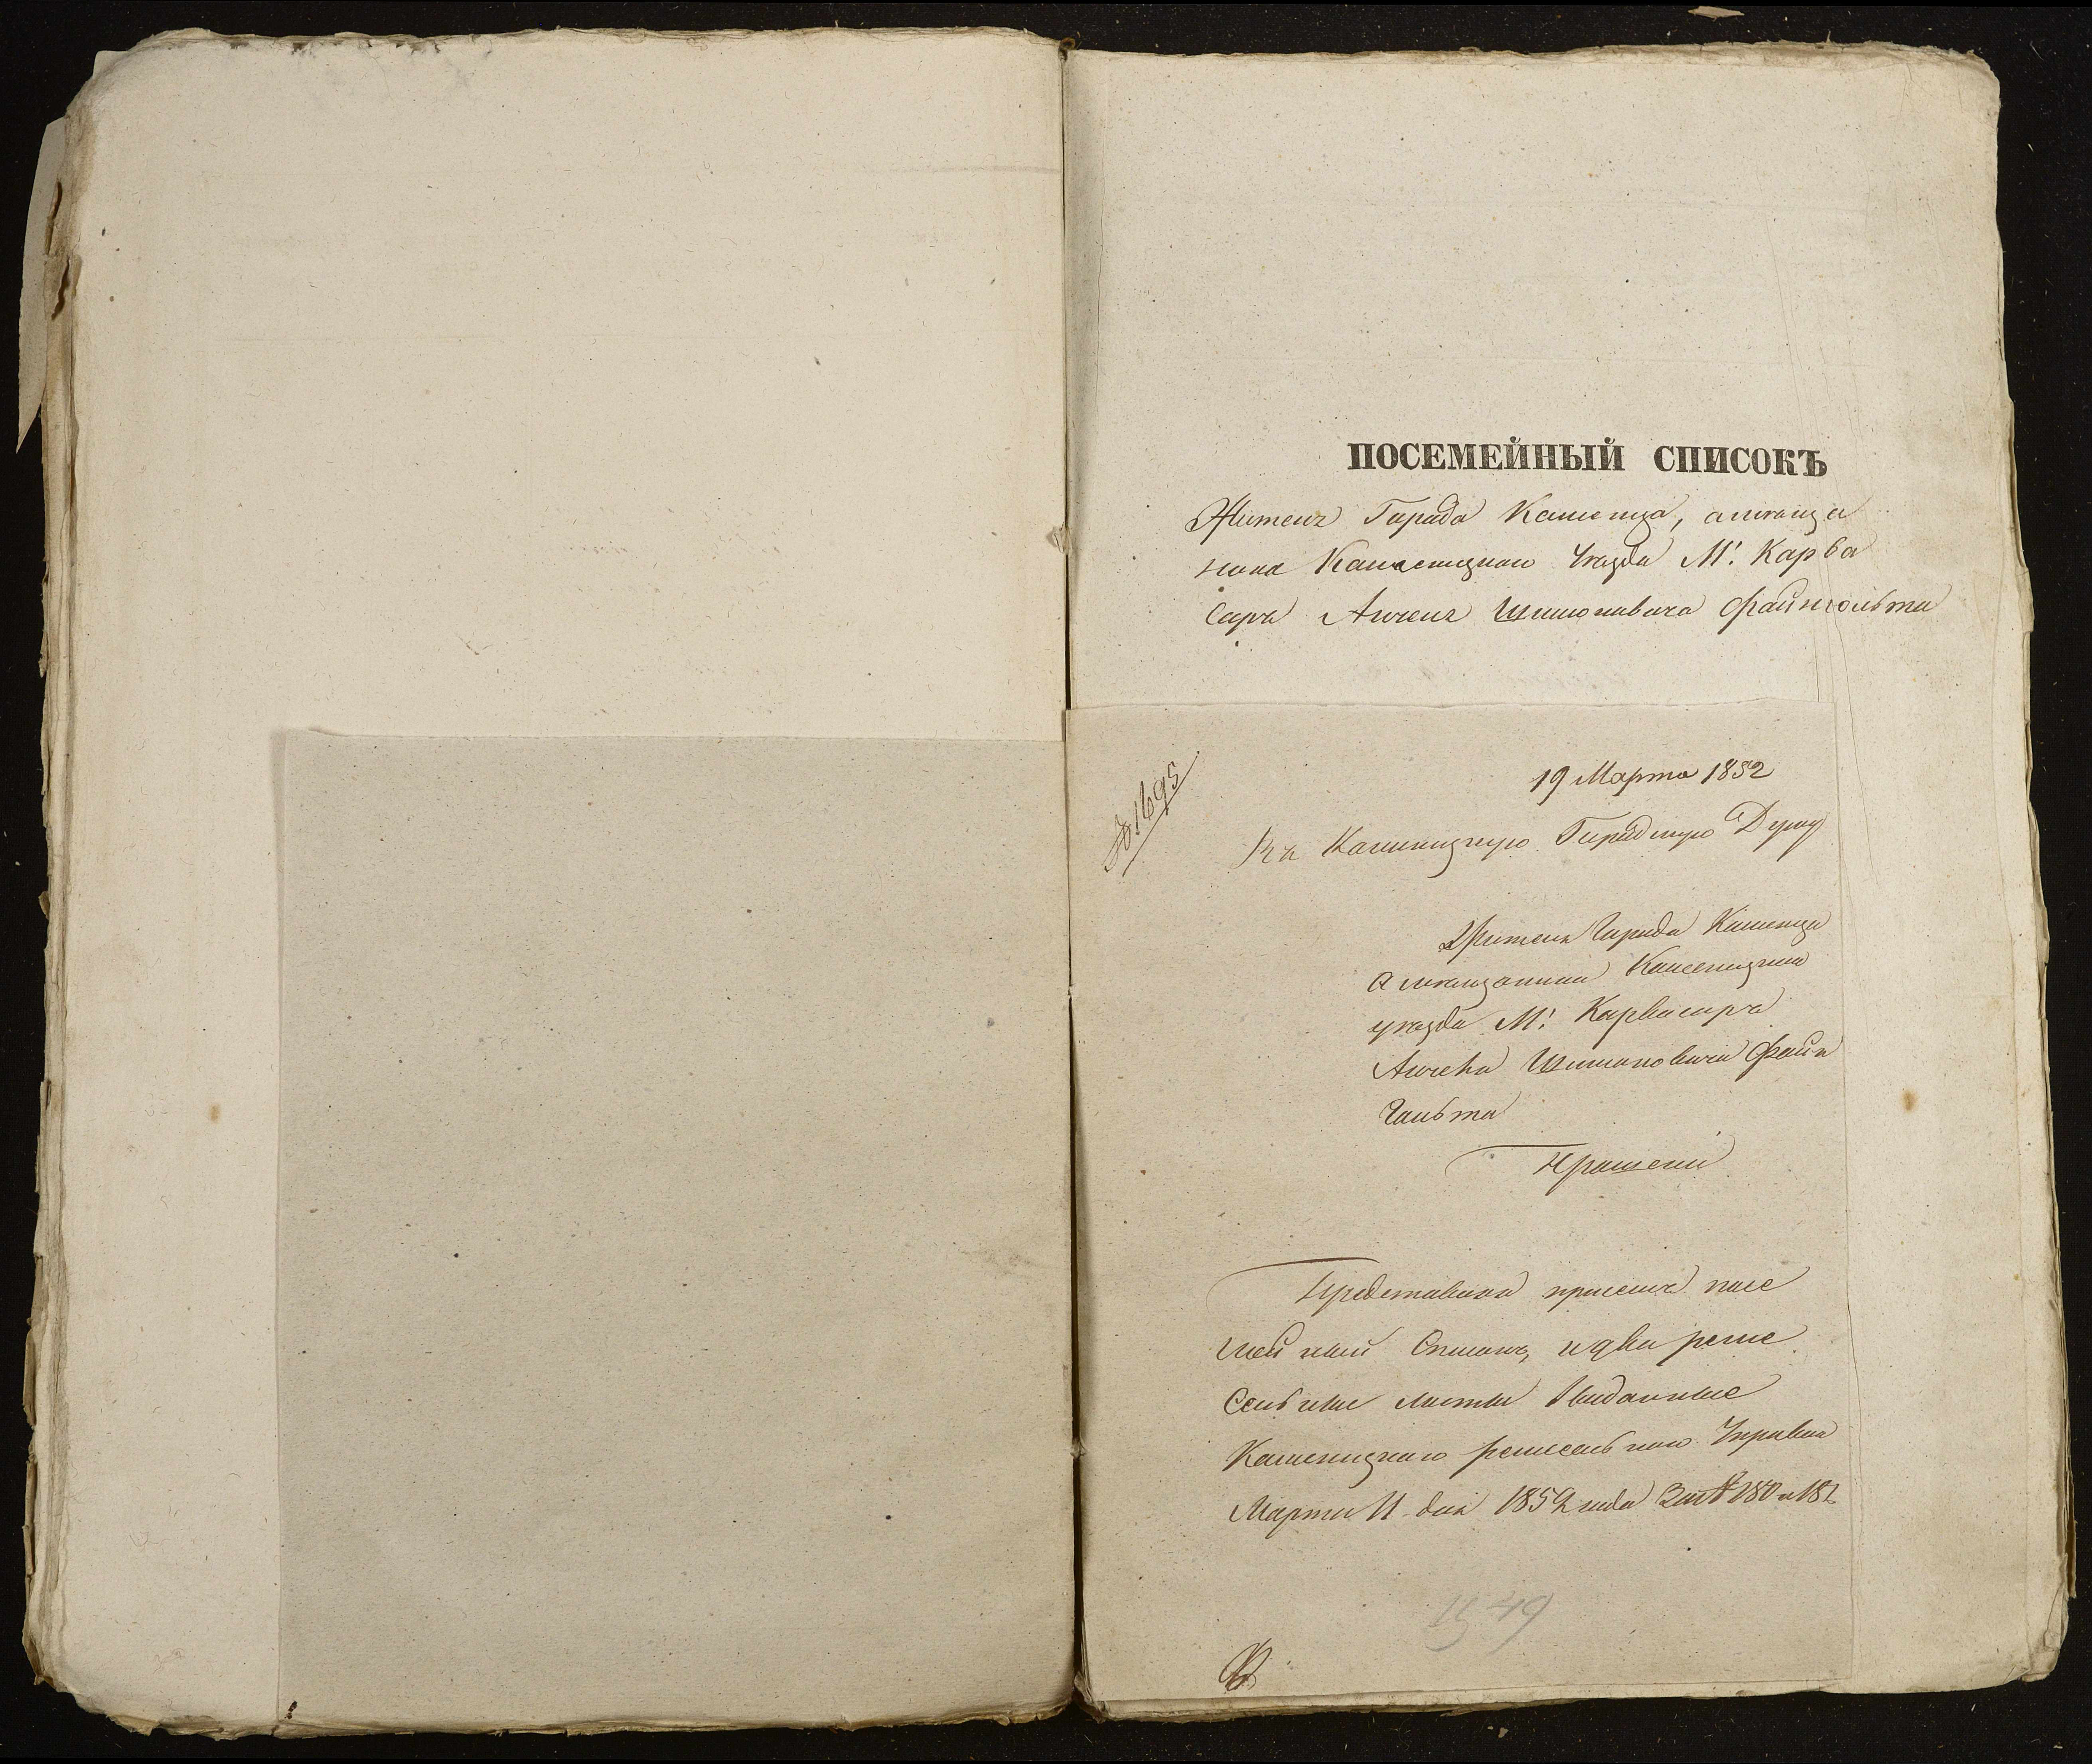 ПОСЕМЕЙНЫЙ СПИСОКЪ
Жителя Города Каменца, а мѣща
нина Каменецкаго Уѣзда М: Карва
саръ Анчеля Шимоновича Файнгольта
№ 1695
19 Марта 1852
Въ Каменецкую Городскую Думу
Жителя Города Каменца
а мѣщанина Каменецкаго
уѣзда М: Карвасаръ
Анчеля Шимоновича Файн
гольта
Прошеніе
Представляя присемъ посе
мейный Списокъ, и два реме
сельные листы выданные
Каменецкаго ремесельнаго Управы
Марта 11 дня 1852 года За № 180 и 181
49